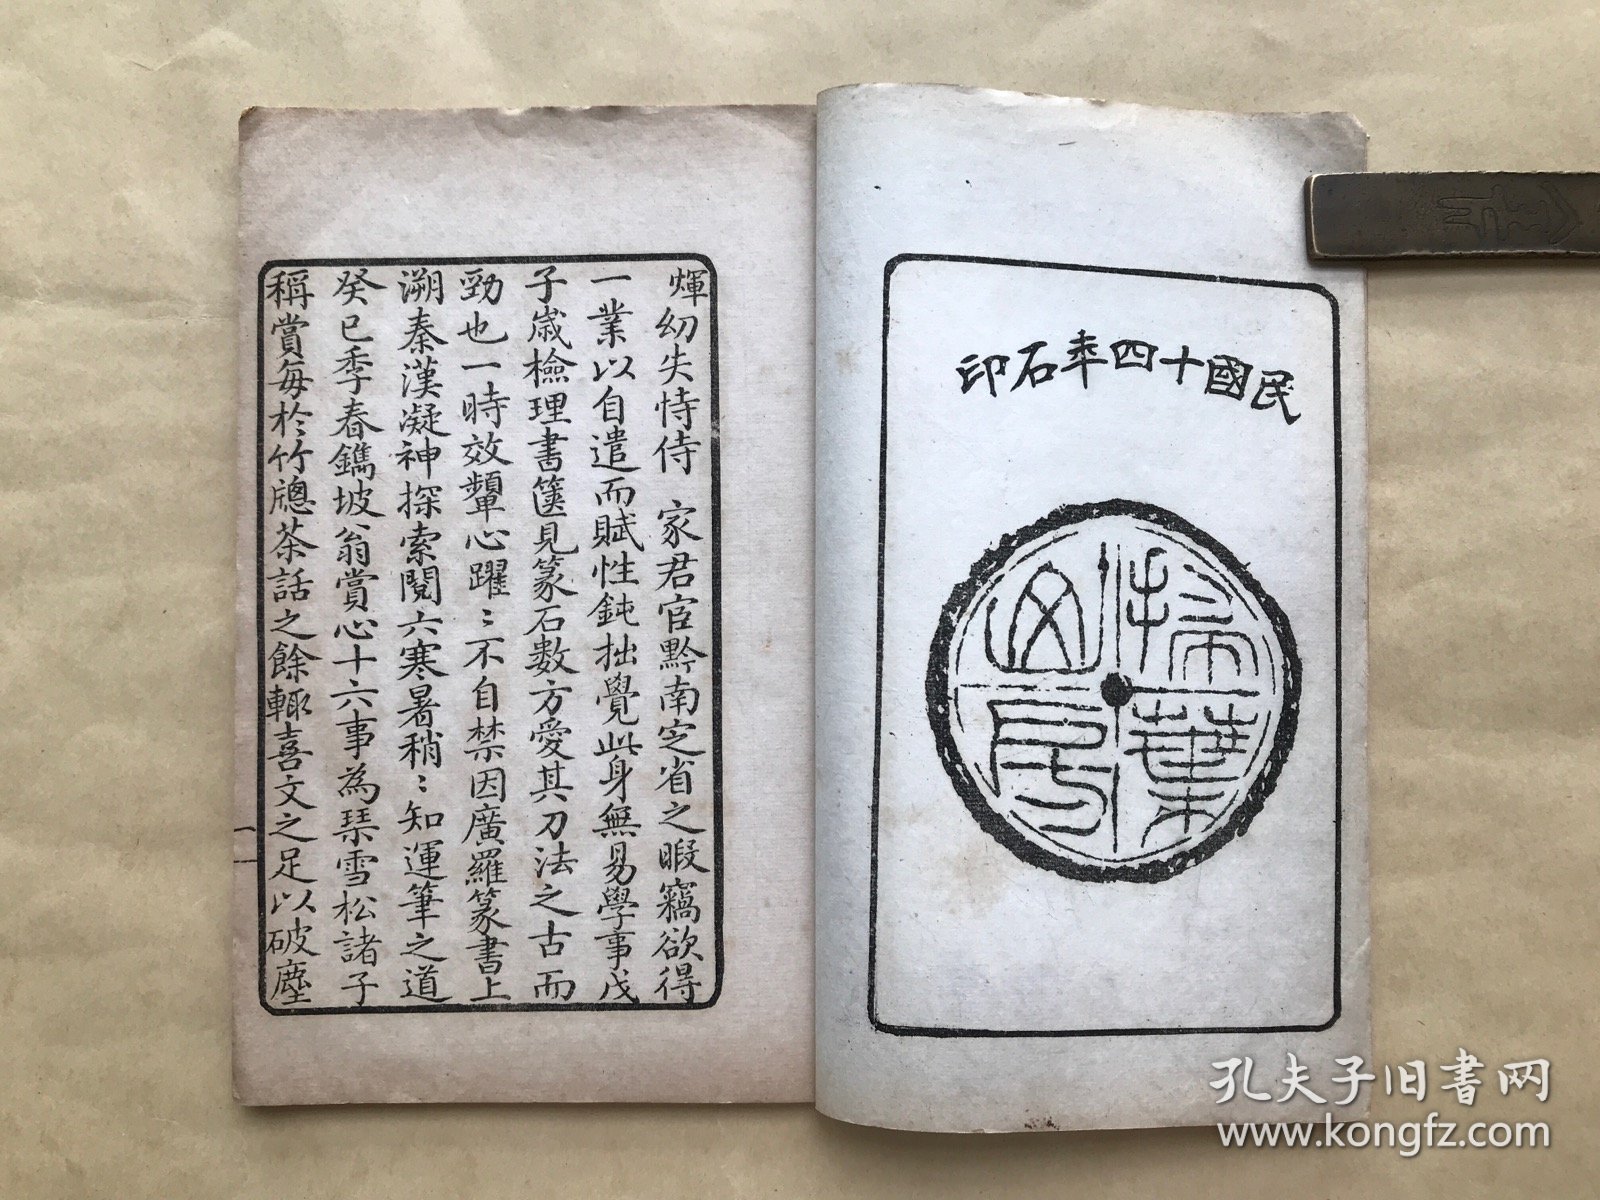 民國十四年石印
掃葉山房
煇幼失恃侍 家君官黔南定省之暇竊欲得
一業以自遣而賦性鈍拙覺此身無易學事戊
子歲檢理書篋見篆石數方愛其刀法之古而
勁也一時效顰心躍〻不自禁因廣羅篆書上
溯秦漢凝神探索閱六寒暑稍〻知運筆之道
癸巳季春鐫坡翁賞心十六事為琹雪松諸子
稱賞每於竹牕茶話之餘輒喜文之足以破塵
孔夫子旧書网
www.kongfz.com